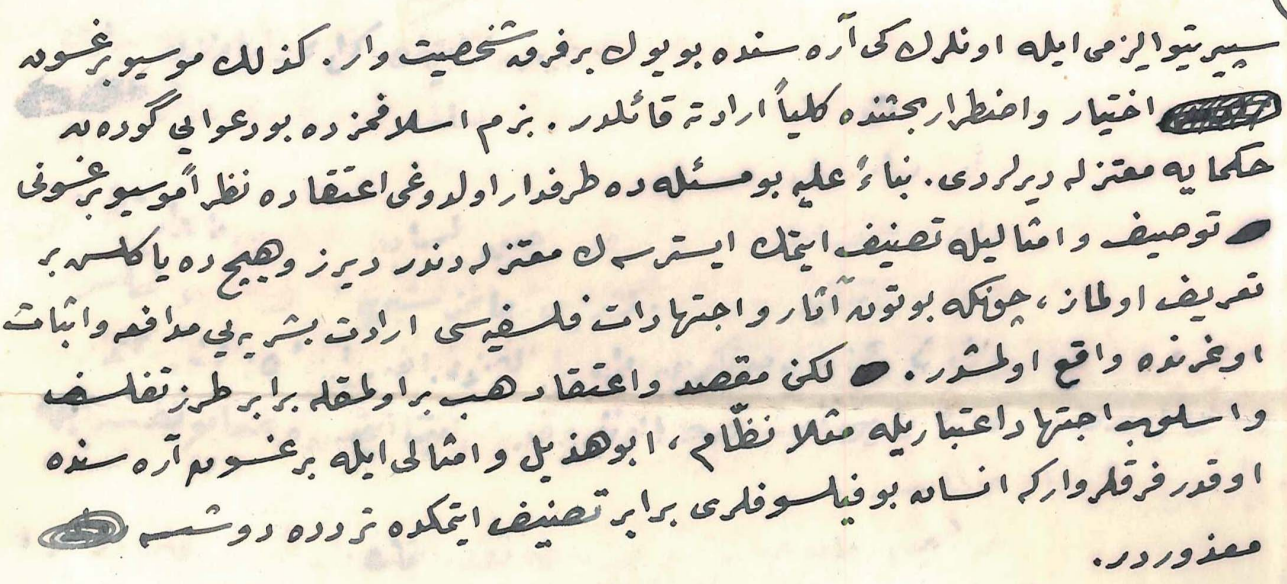 سپيريتواليزمى ايله اونلرك كى آره سنده بويوك بر فرق شخصيت وار. كذلك موسيو برغسون
اختيار واضطرار بحثنده كلياً ارادته قائلدر. بزم اسلافمزده بو دعوايى گوده ن
حكمايه معتزله ديرلردى. بناءً عليه بو مسئله ده طرفدار اولدوغى اعتقاده نظراً موسيو برغسونى
توصيف وامثاليله تصنيف ايتمك ايسترسه ك معتزله دندر ديرز وهيچ ده ياكلش بر
تعريف اولماز، چونكه بوتون آثار واجتهادات فلسفيه سى ارادت بشريه يى مدافعه واثبات
اوغرنده واقع اولمشدر. لكن مقصد واعتقاد هب بر اولمقله برابر طرز تفلسف
واسلوب اجتهاد اعتباريله مثلا نظّام، ابوهذيل وامثالى ايله برغسون آره سنده
اوقدر فرقلر واركه انسان بو فيلسوفلرى برابر تصنيف ايتمكده تردده دوشسه
معذوردر.